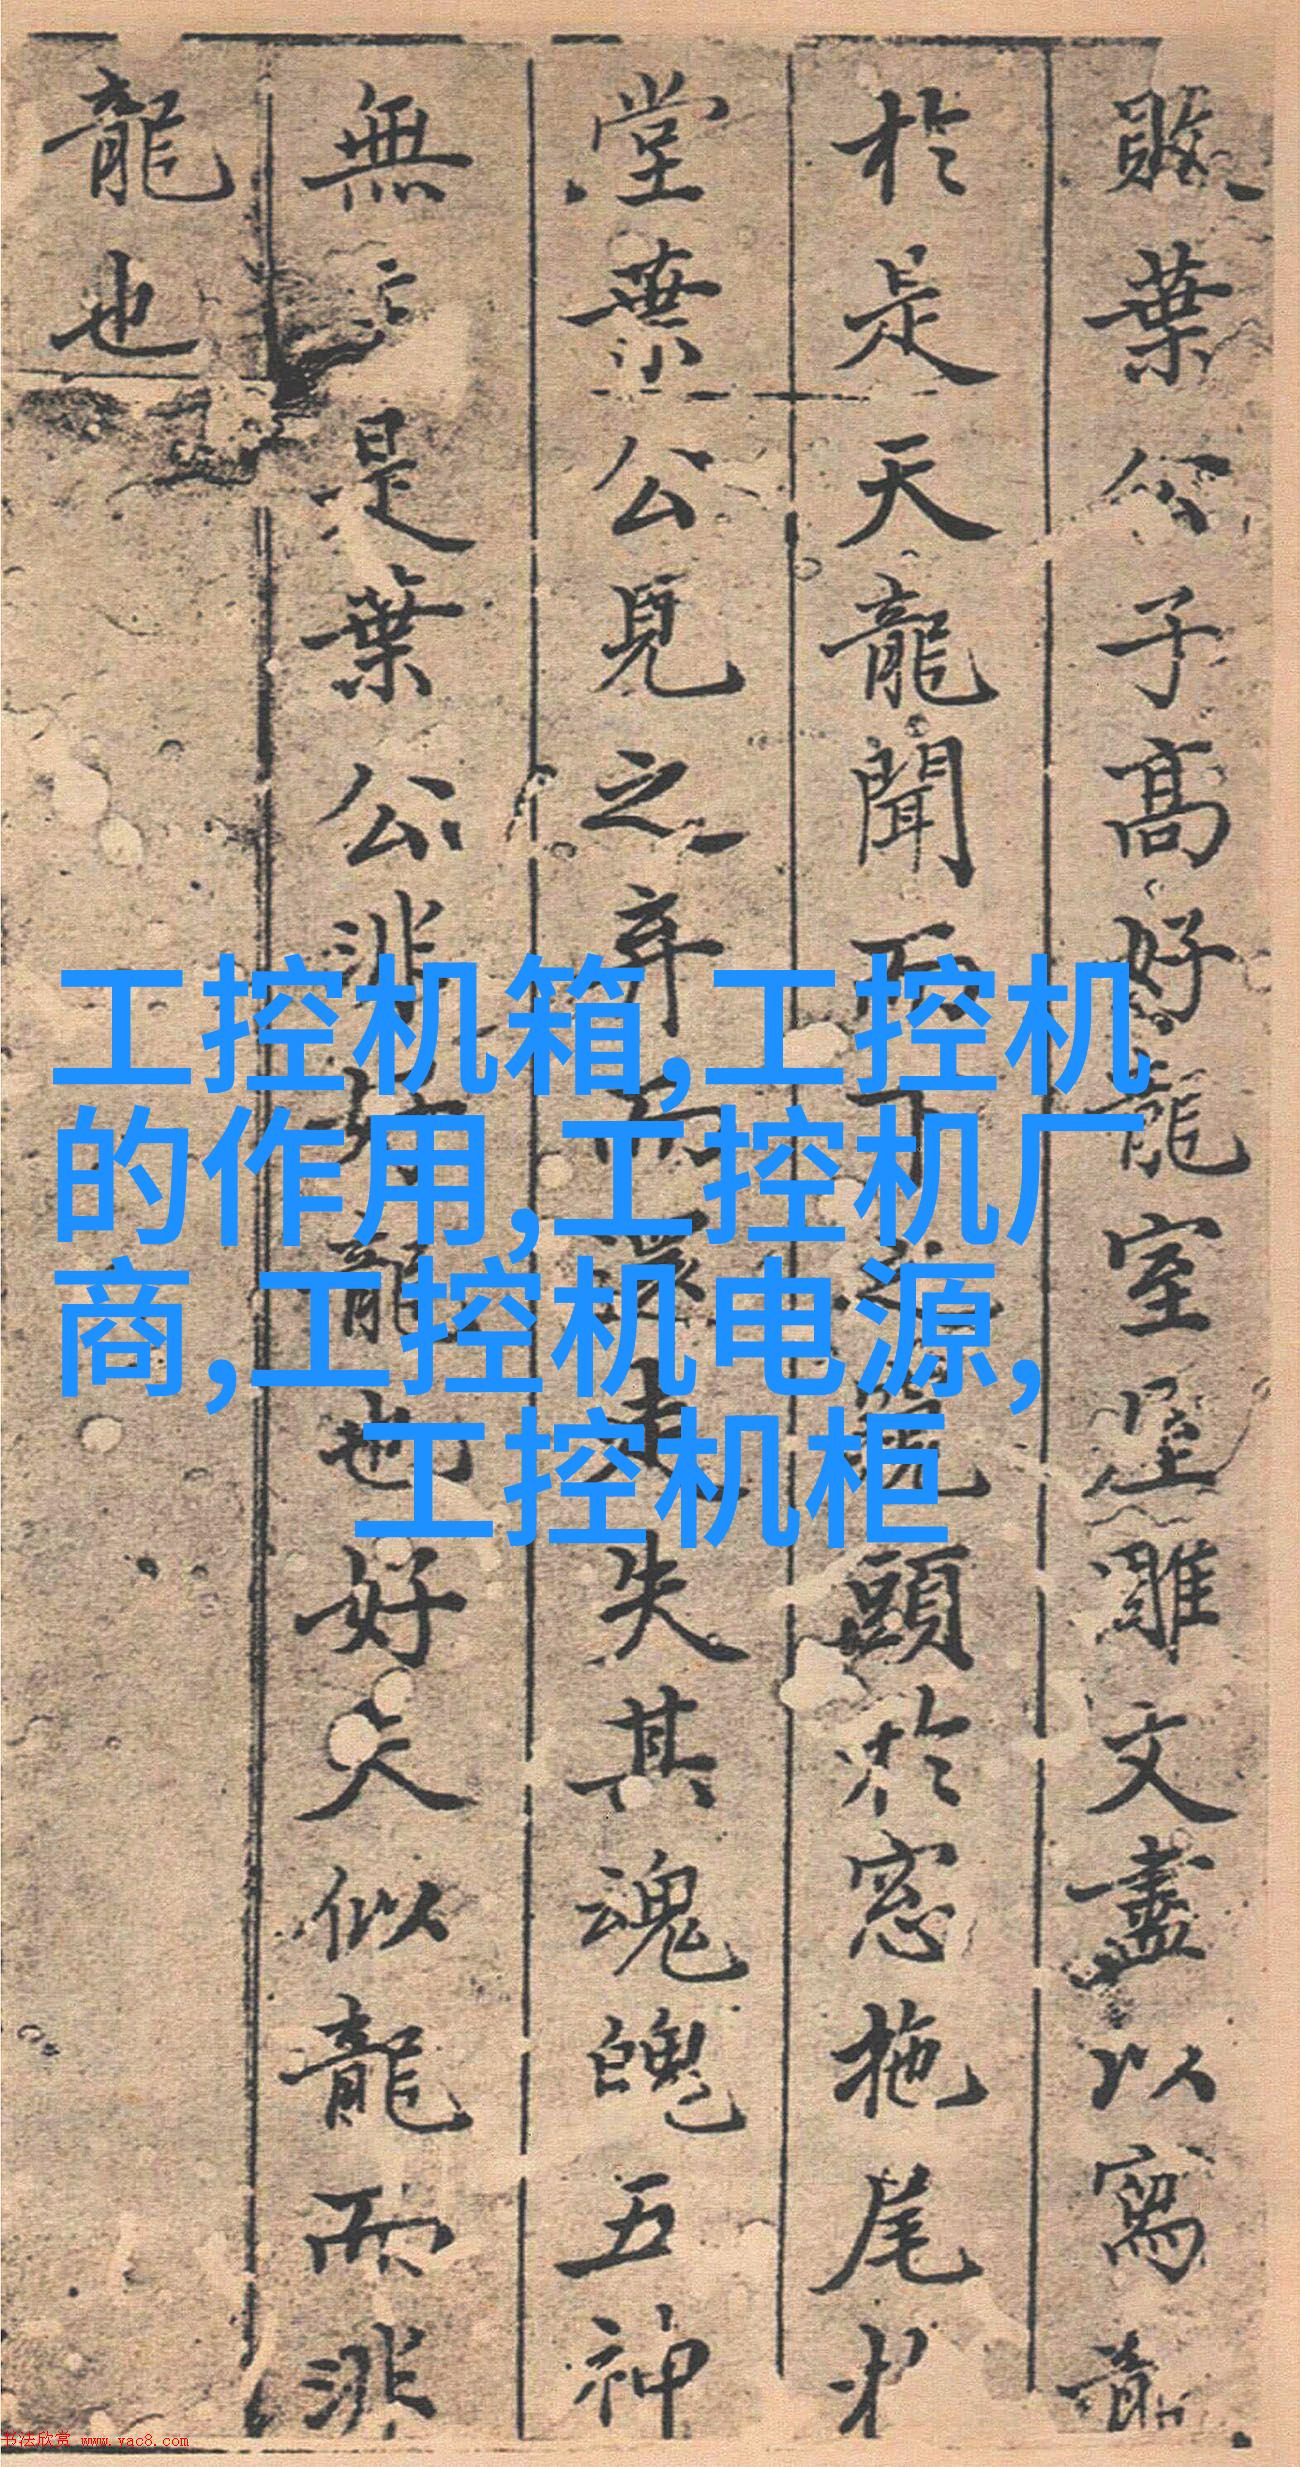 敗葉公子高好龍室屋雕文盡以寫龍
於是天龍聞而下之窺頭於窓拖尾於
堂葉公見之弃而還走失其魂魄五神
無主是葉公非好龍也好夫似龍而非
龍也
工控机箱,工控机
的作用,工控机厂
商,工控机电源,
工控机柜
书法欣赏 www.yac8.com